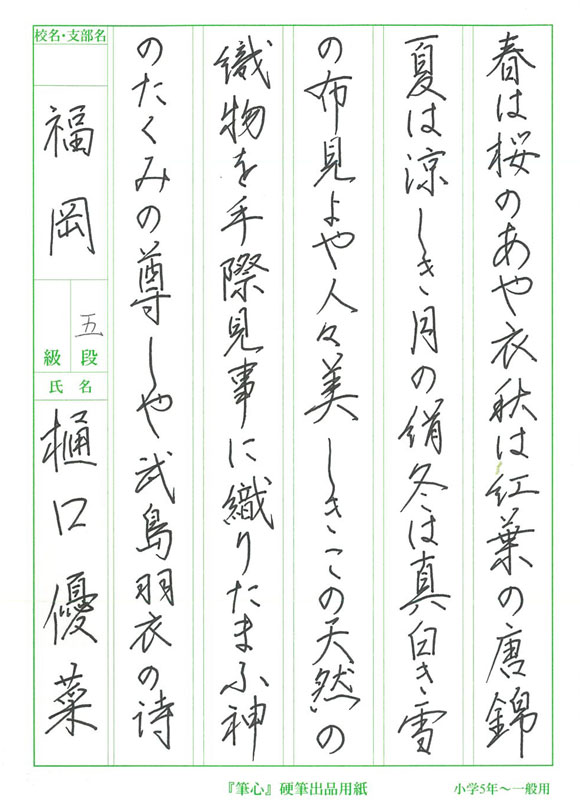 春は桜のあや衣秋は紅葉の唐錦
夏は涼しき月の絹冬は真白き雪
の布見よや人々美しきこの天然の
織物を手際見事に織りたまふ神
のたくみの尊しや武島羽衣の詩
校名・支部名
福岡
五
段
級
氏名
樋口優菜
『筆心』硬筆出品用紙
小学5年～一般用